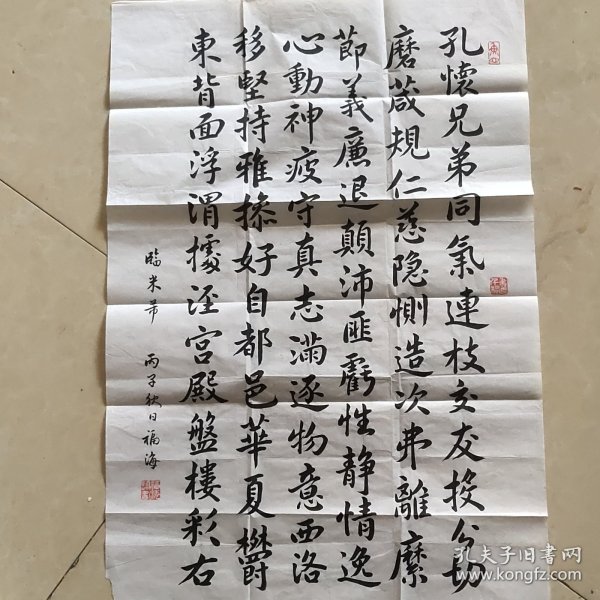 孔懷兄弟同氣連枝交友投分切
磨葴規仁慈隐惻造次弗離縻
節義廉退顛沛匪虧性静情逸
心動神疲守真志滿逐物意西洛
移堅持雅操好自都邑華夏欝
東背面浮渭據涇宮殿盤樓彩右
臨米芾 丙子秋日福海
孔夫子旧書网
kongfz.com